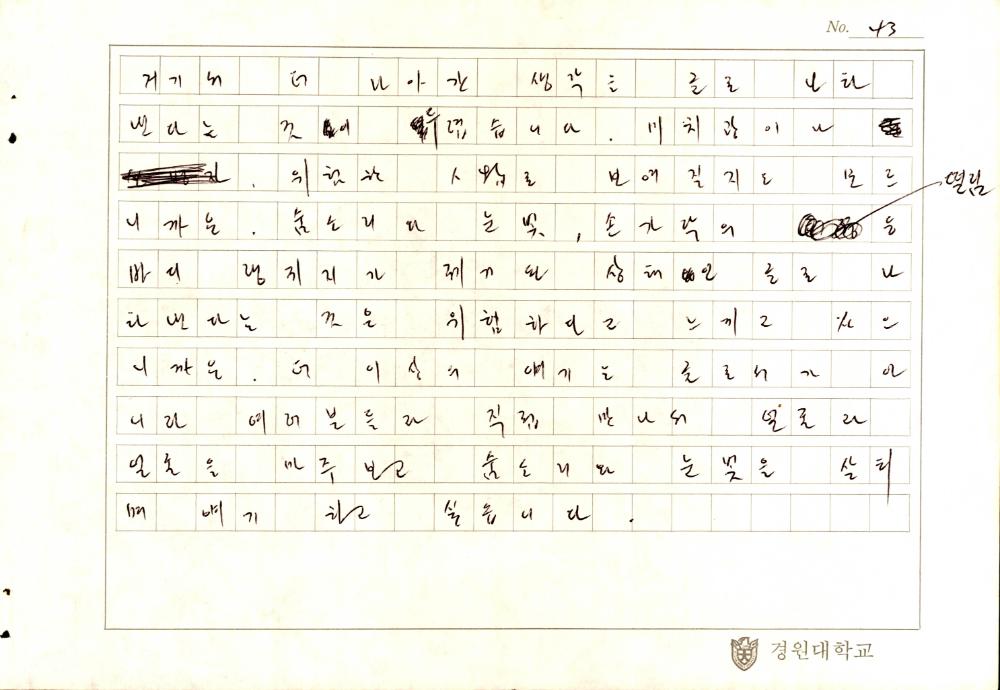 No. 43
거기서 더 나아간 생각을 글로 나타
낸다는 것이 두렵습니다. 미치광이나
. 위험한 사람으로 보여질지도 모르
니까요. 숨소리와 눈빛, 손가락의 떨림을
바디 랭귀지가 제거된 상태인 글로 나
타낸다는 것은 위험하다고 느끼고 있으
니까요. 더 이상의 얘기는 글로서가 아
니라 여러분들과 직접 만나서 얼굴과
얼굴을 마주보고 숨소리와 눈빛을 살피
며 얘기 하고 싶습니다.
경원대학교